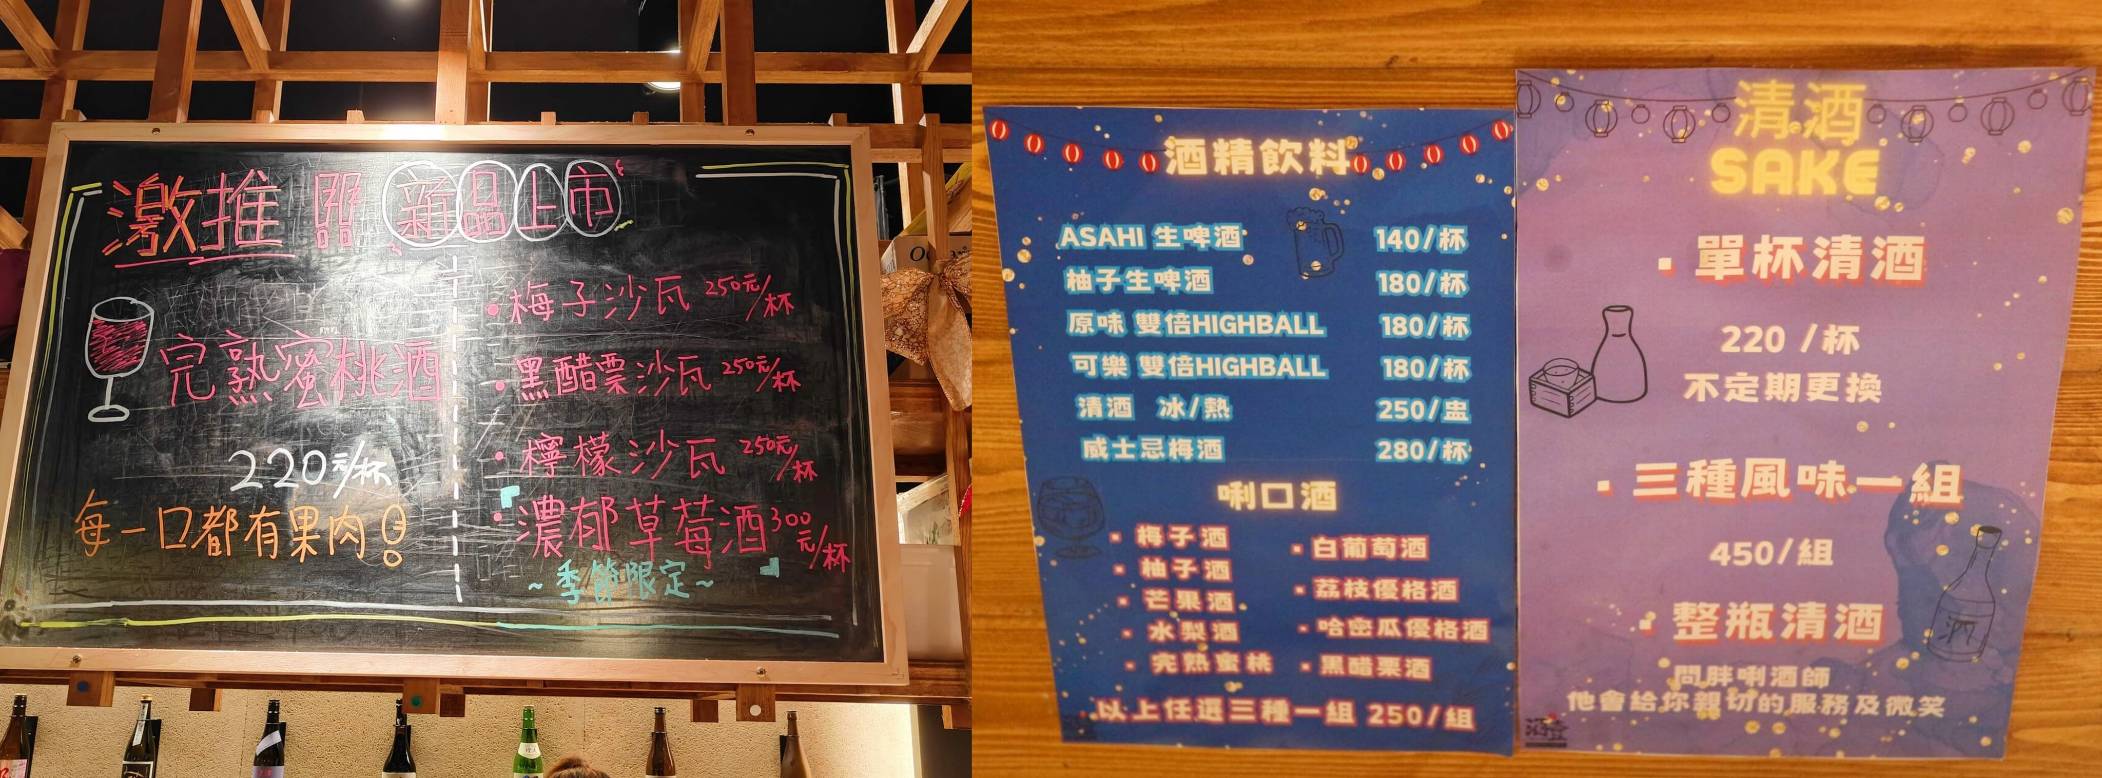 激推 新品上市
完熟蜜桃酒
220元/杯
每一口都有果肉
•梅子沙瓦 250元/杯
•黑醋栗沙瓦 250元/杯
•檸檬沙瓦 250元/杯
•濃郁草莓酒 300元/杯
~季節限定~
酒精飲料
ASAHI 生啤酒 140/杯
柚子生啤酒 180/杯
原味 雙倍HIGHBALL 180/杯
可樂 雙倍HIGHBALL 180/杯
清酒 冰/熱 250/盅
威士忌梅酒 280/杯
唎口酒
• 梅子酒
• 柚子酒
• 芒果酒
• 水梨酒
• 完熟蜜桃
• 白葡萄酒
• 荔枝優格酒
• 哈密瓜優格酒
• 黑醋栗酒
以上任選三種一組 250/組
清酒
SAKE
• 單杯清酒
220 /杯
不定期更換
• 三種風味一組
450/組
• 整瓶清酒
問胖唎酒師
他會給你親切的服務及微笑
酒